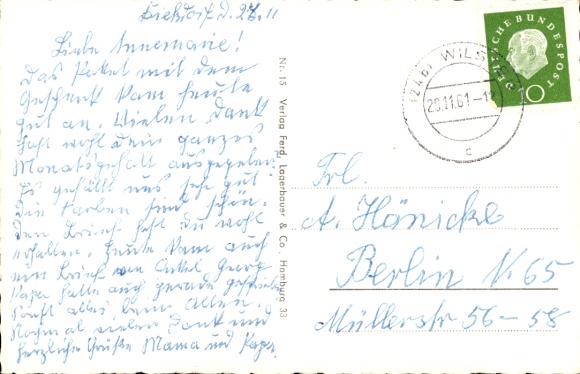 d. 27.11
Liebe Annemarie!
Das Paket mit dem
Geschenk kam heute
gut an. Vielen Dank
hast wohl dein ganzes
Monatsgehalt ausgegeben.
Es gefällt uns sehr gut
die Farben sind schön.
den Brief hast du wohl
erhalten. Heute kam auch
ein Brief von Onkel Georg
Papa hatte auch gerade
sonst alles beim Alten.
Nochmal vielen Dank und
herzliche Grüße Mama und Papa
Nr. 15 Verlag Ferd. Lagerbauer & Co., Hamburg 33
DEUTSCHE BUNDESPOST
10
(24b) WILSTER
28.11.61-1
c
Frl.
A. Hänicke
Berlin N. 65
Müllerstr 56-58